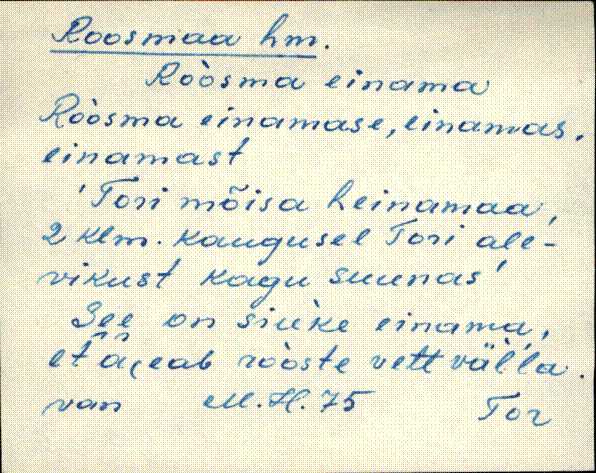 Roosmaa hm.
Ròòsma einama
Ròòsma einamase, einamas,
einamast
'Tori mõisa heinamaa,
2 klm. kaugusel Tori ale-
vikust kagu suunas'
See on siuke einama,
et aeab ròòste vett välla.
van M. H. 75 Tor